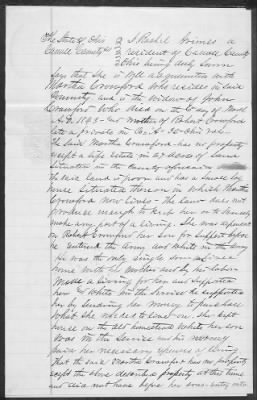 The State of Ohio } I Rachel Grimes a
Carroll County SS } resident of Carroll County
} Ohio being duly Sworn
Says that she is well acquainted with
Martha Crawford who resides in said
County and is the widow of John
Crawford who died on the day of
A.D. 1843 and mother of Robert Crawford
late a private in Co. A. Ohio
The said Martha Crawford has no property
except a life estate in acres of land
Situated in the County aforesaid
The said land is poor and has a small
house situated thereon in which Martha
Crawford now lives - The land does not
produce enough to keep her or to
make any part of a living. She was dependent
on Robert Crawford her son for support before
he entered the Army and while in the army
he was the only single son at
home with his mother and by his labor
made a living for her and supported
her & while in the service he supported
her by sending her money to purchase
what she needed to live on. She kept
house on the old homestead while her son
was in the service and his money
paid her necessary expenses of living
That the said Martha Crawford has no property
except the above described property at this time
and did not have before her son's entry into